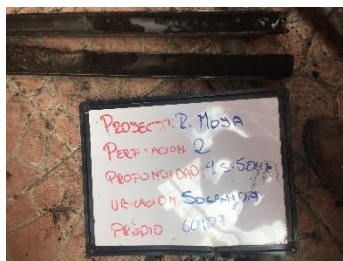 Proyecto: P. Moya
Perforacion 2
Profundidad:
Ubicacion Socanida
Predio